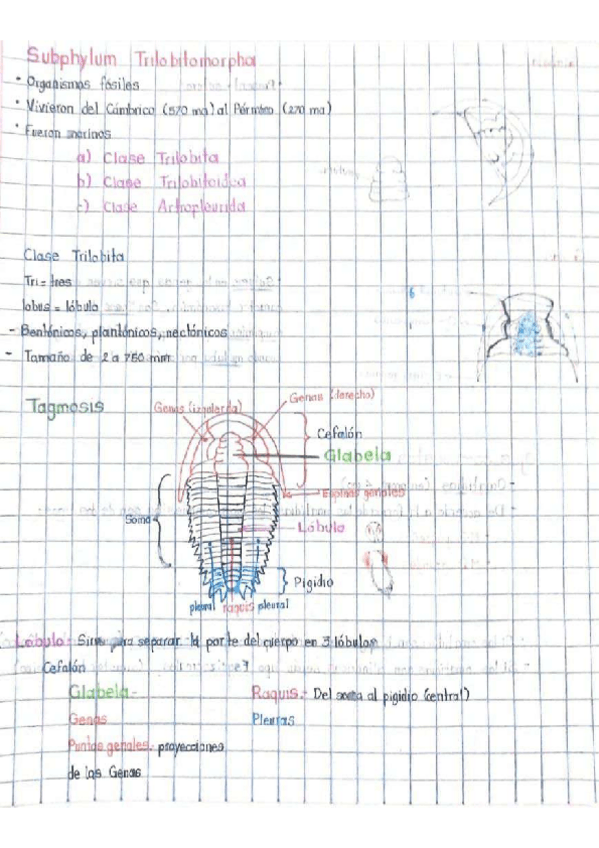 Subphylum Trilobitomorpha
· Organismos fósiles
· Vivieron del Cámbrico (570 ma) al Pérmico (270 ma)
· Fueron marinos
a) Clase Trilobita
b) Clase Trilobitoidea
c) Clase Artropleurida
Clase Trilobita
Tri = tres
lobus = lóbulo
- Bentónicos, planctónicos, nectónicos
- Tamaño de 2 a 750 mm
Tagmosis
Genas (izquierda)
Genas (derecha)
Cefalón
Glabela
Espinas genales
Soma
Lóbulo
Pigidio
pleural raquis pleural
Lóbulo.- Sirve para separar la parte del cuerpo en 3 lóbulos
Cefalón
Glabela.-
Raquis.- Del soma al pigidio (central)
Genas
Pleuras
Puntas genales.- proyecciones
de las Genas